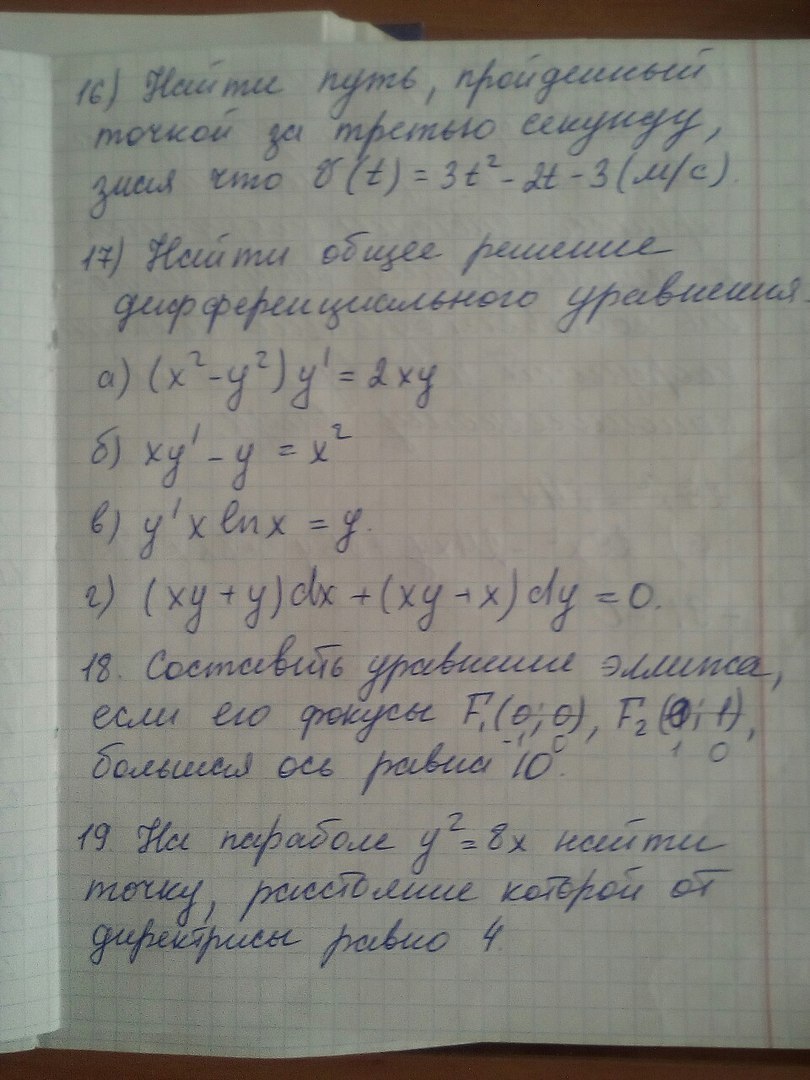 16) Найти путь, пройденный
точкой за третью секунду,
зная что v(t) = 3t² - 2t - 3 (м/с).
17) Найти общее решение
дифференциального уравнения.
а) (x² - y²) y' = 2xy
б) xy' - y = x²
в) y' x ln x = y.
г) (xy + y)dx + (xy + x) dy = 0.
18. Составить уравнение эллипса,
если его фокусы F₁(0; 0), F₂(0; 1),
-1 0 1 0
большая ось равна 10.
19. На параболе y² = 8x найти
точку, расстояние которой от
директрисы равно 4